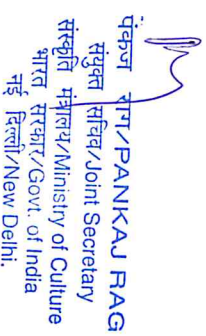 पंकज राग/PANKAJ RAG
संयुक्त सचिव/Joint Secretary
संस्कृति मंत्रालय/Ministry of Culture
भारत सरकार/Govt. of India
नई दिल्ली/New Delhi.